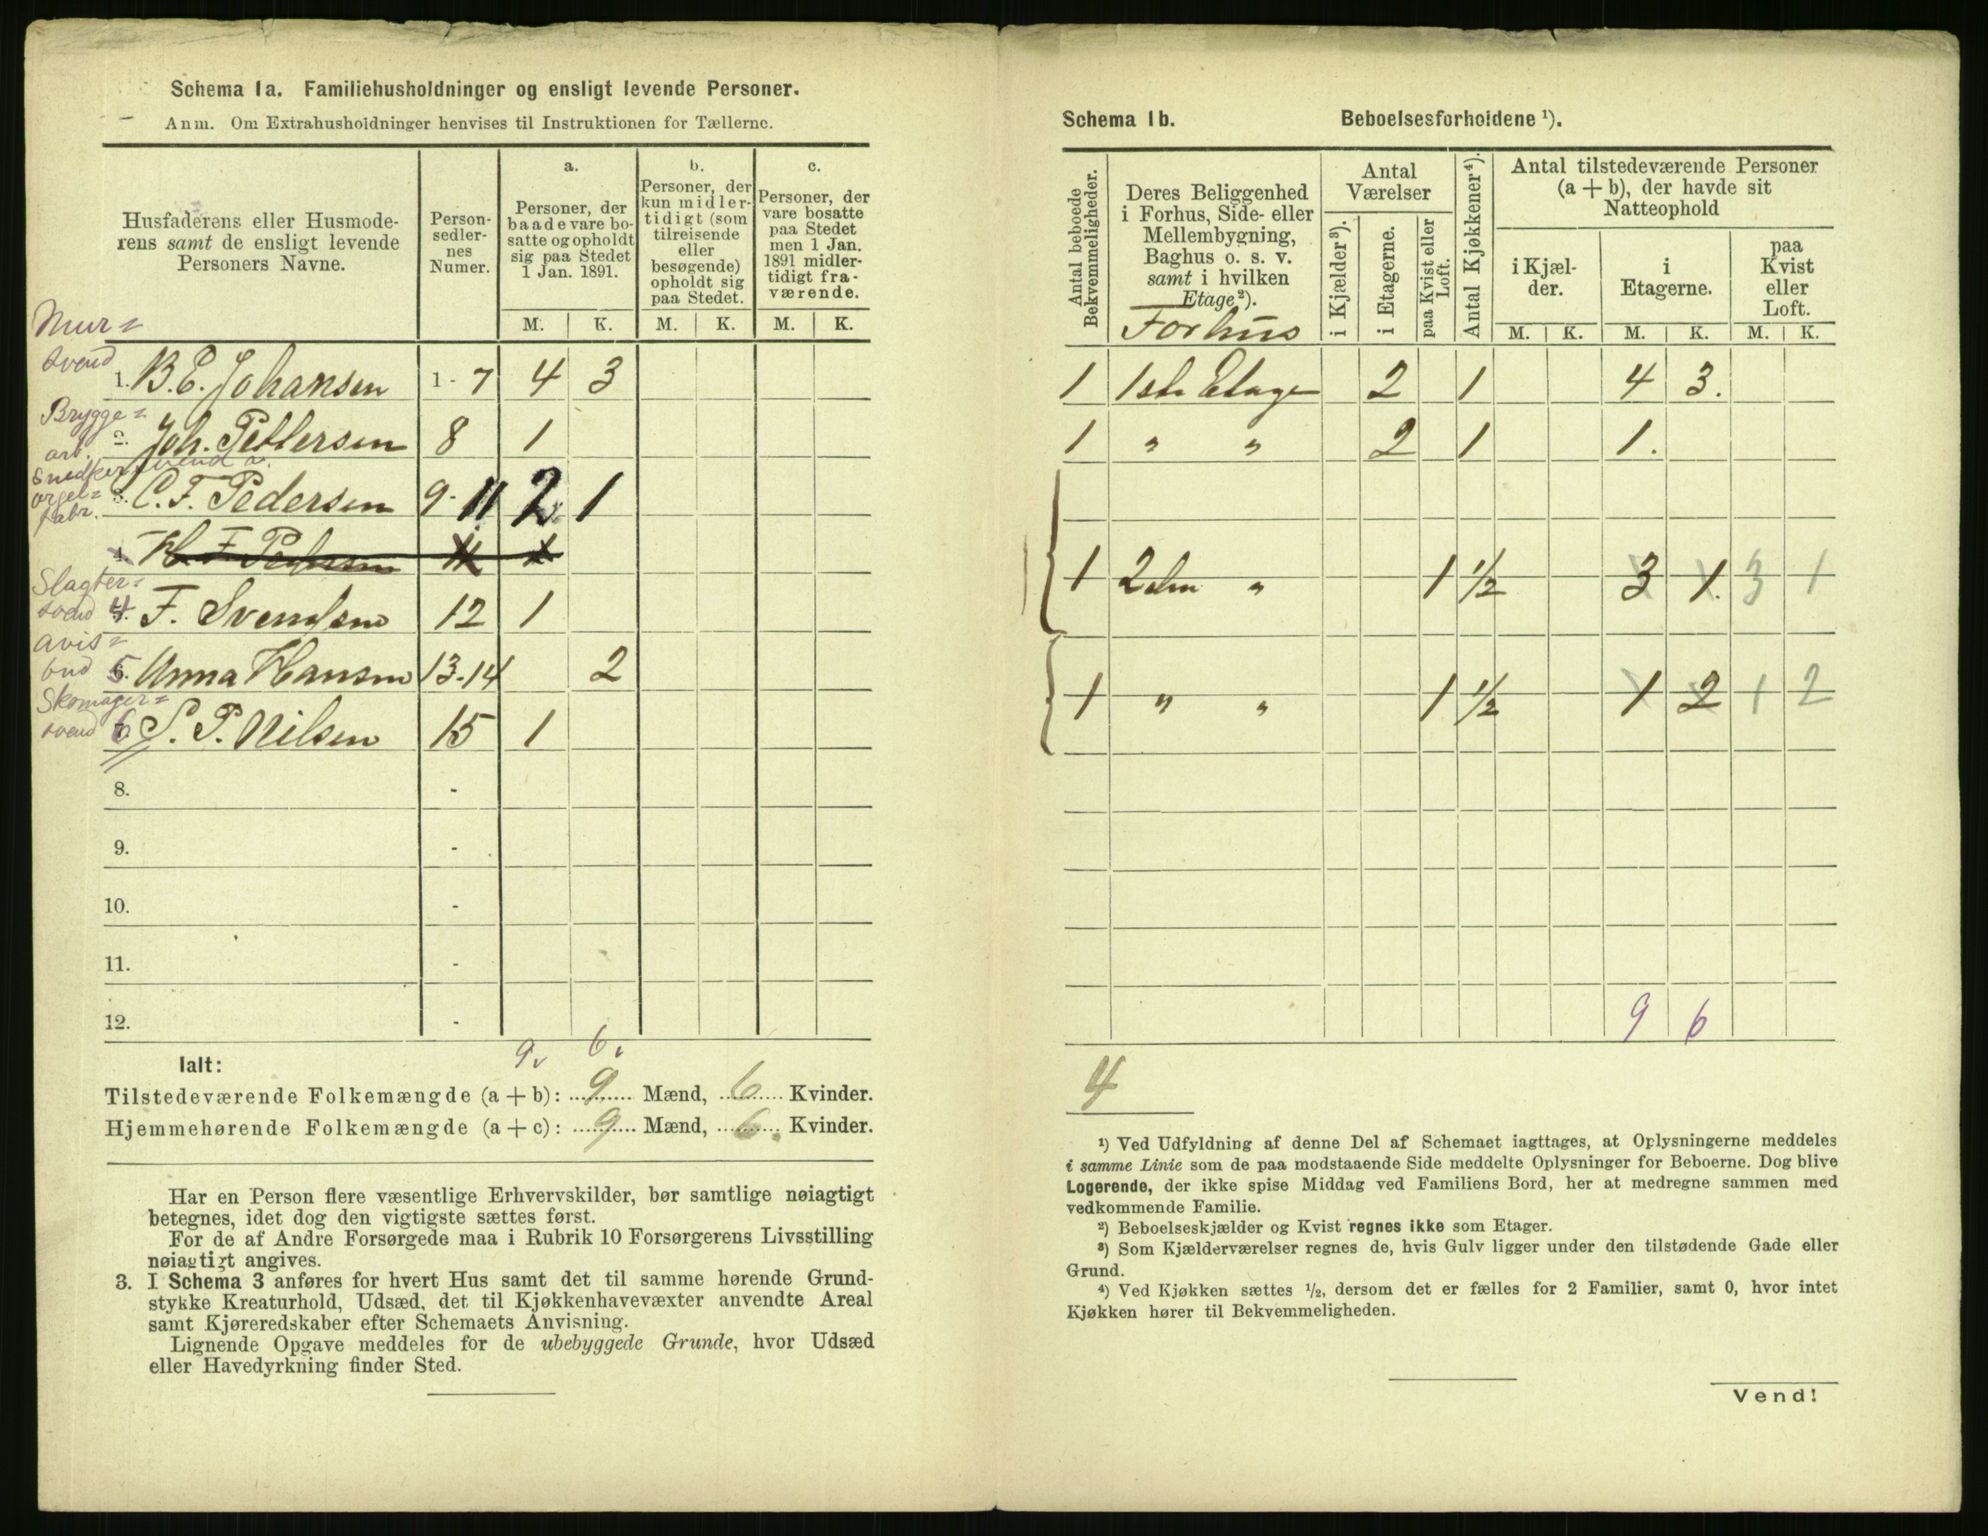 Schema 1a. Familiehusholdninger og ensligt levende Personer.
Anm. Om Extrahusholdninger henvises til Instruktionen for Tællerne.
Husfaderens eller Husmode-
rens samt de ensligt levende
Personers Navne.
Person-
sedler-
nes
Numer.
a.
Personer, der
baade vare bo-
satte og opholdt
sig paa Stedet
1 Jan. 1891.
b.
Personer, der
kun midler-
tidigt (som
tilreisende
eller
besøgende)
opholdt sig
paa Stedet.
c.
Personer, der
vare bosatte
paa Stedet
men 1 Jan.
1891 midler-
tidigt fra-
værende.
M. K. M. K. M. K.
Mur=
svend
1. B. E. Johansen 1 - 7 4 3
Brygge=
arb.
2. Joh. Pettersen 8 1
Snedkersvend a.
orgel=
fabr.
3. C. F. Pedersen 9 - 11 2 1
4. H. F. Pedersen 11 1
Slagter=
svend 4. F. Svendsen 12 1
Avis=
bud 5. Anna Hansen 13-14 2
Skomager=
svend 6 S. P. Nilsen 15 1
8. -
9. -
10. -
11. -
12. -
9. 6.
Ialt:
Tilstedeværende Folkemængde (a + b): 9 Mænd, 6 Kvinder.
Hjemmehørende Folkemængde (a + c): 9 Mænd, 6. Kvinder.
Har en Person flere væsentlige Erhvervskilder, bør samtlige nøiagtigt
betegnes, idet dog den vigtigste sættes først.
For de af Andre Forsørgede maa i Rubrik 10 Forsørgerens Livsstilling
nøiagtigt angives.
3. I Schema 3 anføres for hvert Hus samt det til samme hørende Grund-
stykke Kreaturhold, Udsæd, det til Kjøkkenhavevæxter anvendte Areal
samt Kjøreredskaber efter Schemaets Anvisning.
Lignende Opgave meddeles for de ubebyggede Grunde, hvor Udsæd
eller Havedyrkning finder Sted.
Schema 1b. Beboelsesforholdene ¹).
Antal beboede
Bekvemmeligheder.
Deres Beliggenhed
i Forhus, Side- eller
Mellembygning,
Baghus o. s. v.
samt i hvilken
Etage²).
Forhus
Antal
Værelser
i Kjælder³).
i Etagerne.
paa Kvist eller
Loft.
Antal Kjøkkener⁴).
Antal tilstedeværende Personer
(a + b), der havde sit
Natteophold
i Kjæl-
der.
i
Etagerne.
paa
Kvist
eller
Loft.
M. K. M. K. M. K.
1 1ste Etage 2 1 4 3.
1 " " 2 1 1.
1 2den " 1 1/2 3 1. 3 1
1 " " 1 1/2 1 2 1 2
9 6
4
¹) Ved Udfyldning af denne Del af Schemaet iagttages, at Oplysningerne meddeles
i samme Linie som de paa modstaaende Side meddelte Oplysninger for Beboerne. Dog blive
Logerende, der ikke spise Middag ved Familiens Bord, her at medregne sammen med
vedkommende Familie.
²) Beboelseskjælder og Kvist regnes ikke som Etager.
³) Som Kjælderværelser regnes de, hvis Gulv ligger under den tilstødende Gade eller
Grund.
⁴) Ved Kjøkken sættes ¹/₂, dersom det er fælles for 2 Familier, samt 0, hvor intet
Kjøkken hører til Bekvemmeligheden.
Vend!